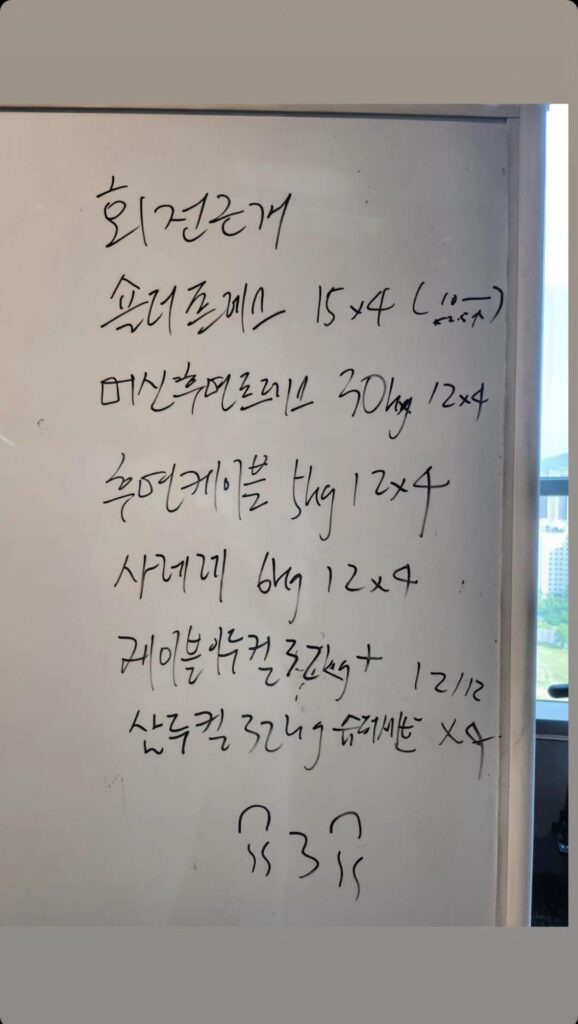 회전근개
숄더프레스 15x4 (10
머신후면프레스 30kg 12x4
후면케이블 5kg 12x4
사레레 6kg 12x4
케이블이두컬 32kg + 12/12
삼두컬 32kg 슈퍼세트 x4